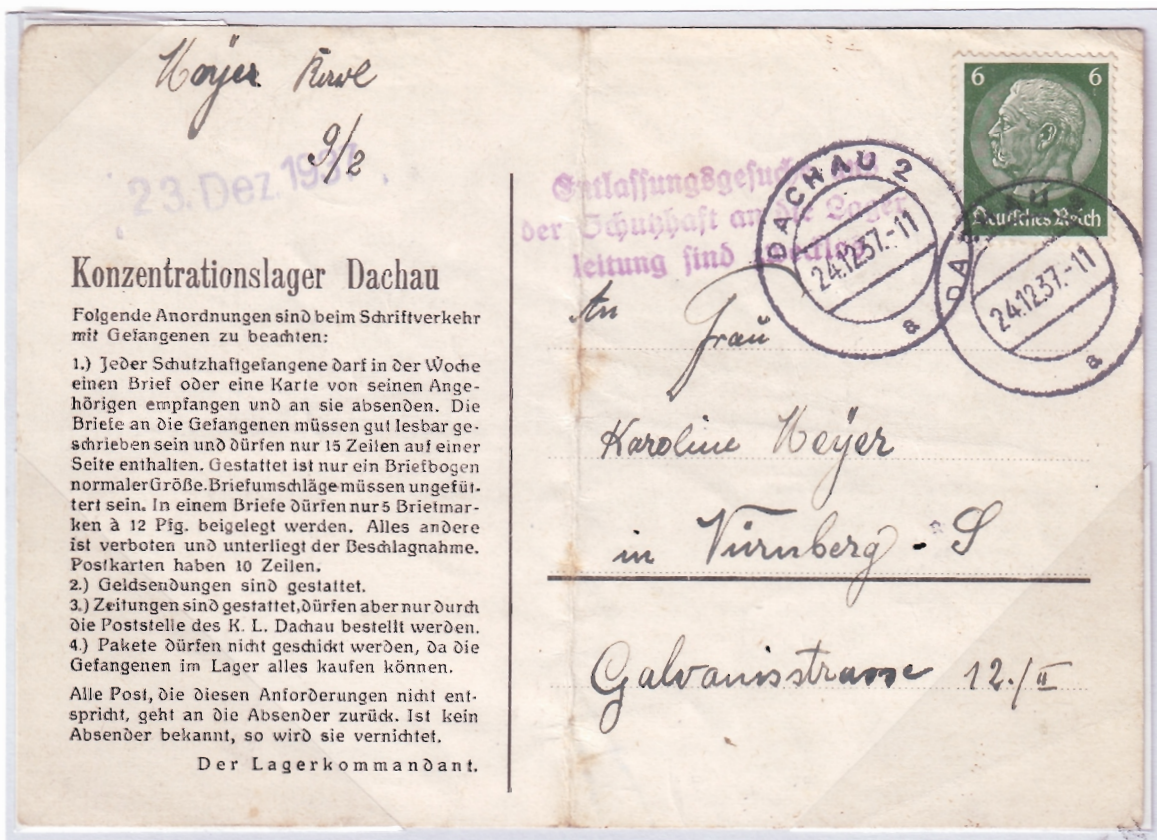 Meyer Karl
9/2
23. Dez. 1937
Konzentrationslager Dachau
Folgende Anordnungen sind beim Schriftverkehr
mit Gefangenen zu beachten:
1.) Jeder Schutzhaftgefangene darf in der Woche
einen Brief oder eine Karte von seinen Ange-
hörigen empfangen und an sie absenden. Die
Briefe an die Gefangenen müssen gut lesbar ge-
schrieben sein und dürfen nur 15 Zeilen auf einer
Seite enthalten. Gestattet ist nur ein Briefbogen
normaler Größe. Briefumschläge müssen ungefüt-
tert sein. In einem Briefe dürfen nur 5 Briefmar-
ken à 12 Pfg. beigelegt werden. Alles andere
ist verboten und unterliegt der Beschlagnahme.
Postkarten haben 10 Zeilen.
2.) Geldsendungen sind gestattet.
3.) Zeitungen sind gestattet, dürfen aber nur durch
die Poststelle des K. L. Dachau bestellt werden.
4.) Pakete dürfen nicht geschickt werden, da die
Gefangenen im Lager alles kaufen können.
Alle Post, die diesen Anforderungen nicht ent-
spricht, geht an die Absender zurück. Ist kein
Absender bekannt, so wird sie vernichtet.
Der Lagerkommandant.
Entlassungsgesuche
der Schutzhaft an die Lager
leitung sind
6 6
Deutsches Reich
DACHAU 2
24.12.37.-11
a
DACHAU
24.12.37.-11
a
An
Frau
Karoline Meyer
in Nürnberg - S
Galvanisstrasse 12./II